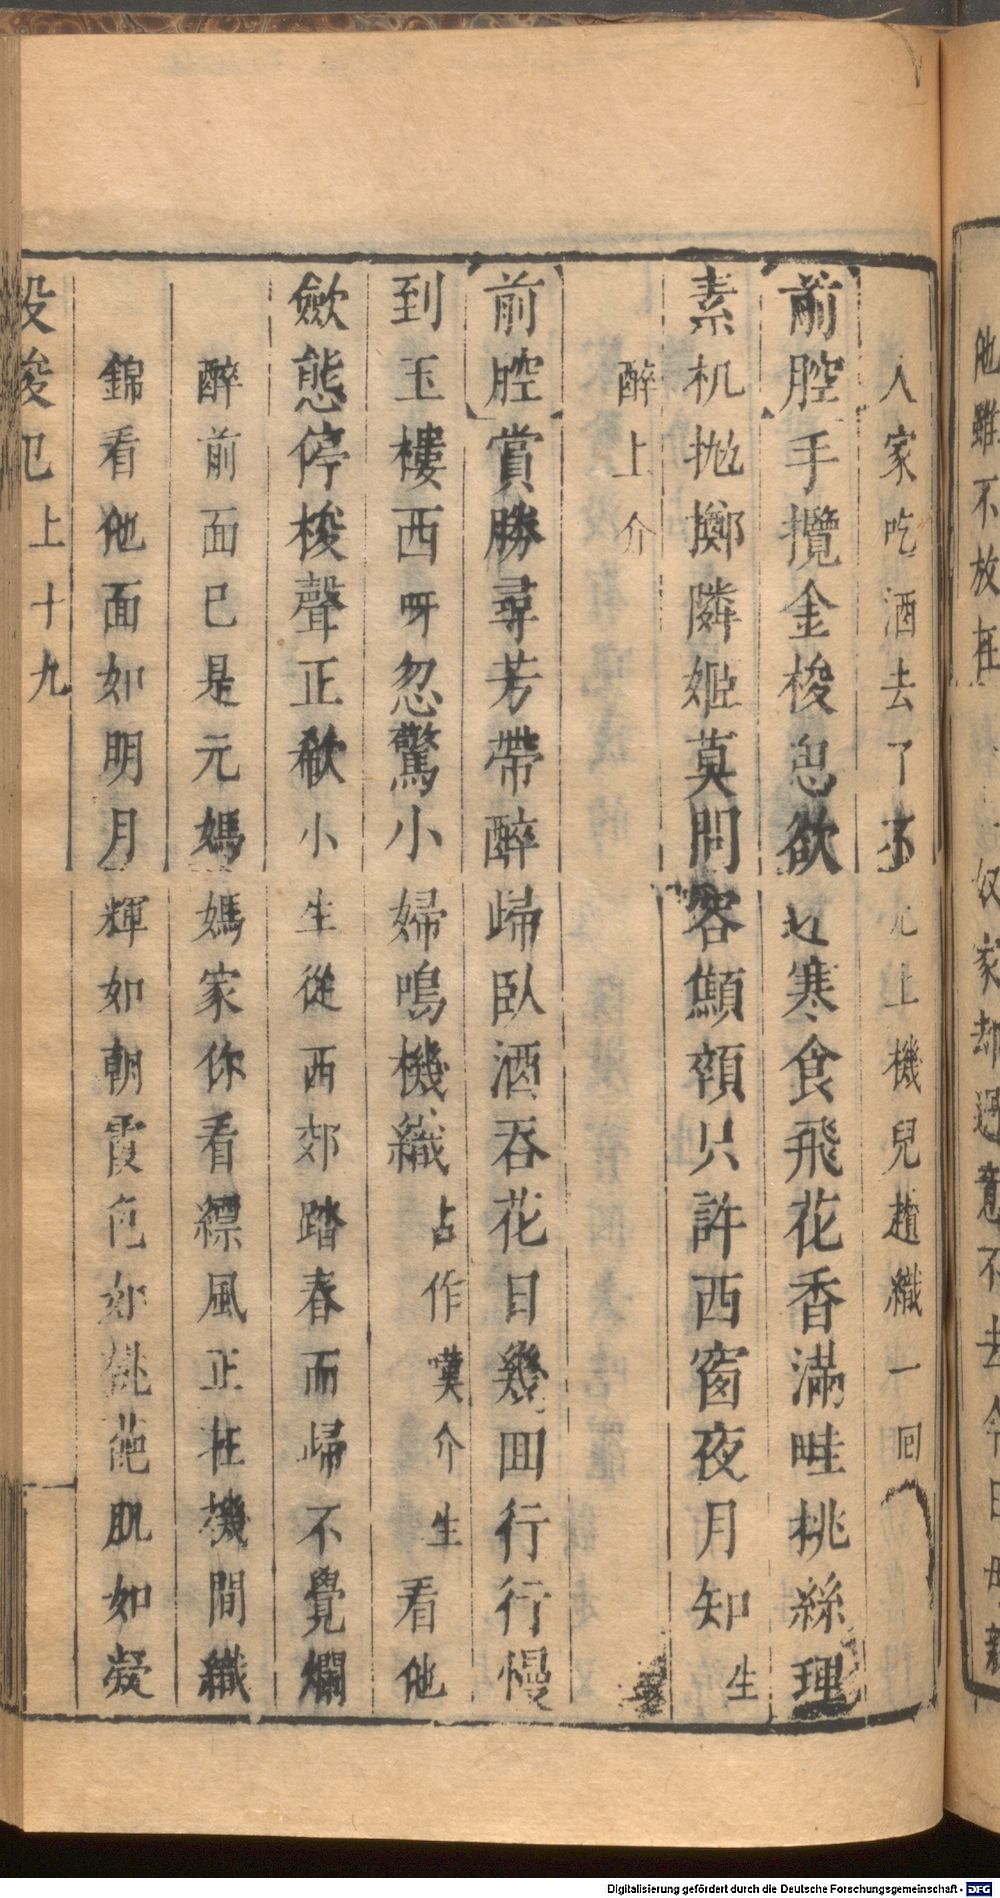 他雖不放在 奴家却遇意不去今日母親
人家吃酒去了不免上機兒趲織一回
【前腔】手攬金梭怠欲 寒食飛花香滿畦桃絲理
素机抛擲隣姬莫問客顦顇只許西窗夜月知生
醉上介
【前腔】賞勝尋芳帶醉歸臥酒吞花日幾囬行行慢
到玉樓西呀忽驚小婦鳴機織占作嘆介生看他
斂態停梭聲正欷小生從西郊踏春而歸不覺爛
醉前面已是元媽媽家你看縹風正在機間織
錦看他面如明月輝如朝霞色如 葩肌如凝
投梭 上十九
Digitalisierung gefördert durch die Deutsche Forschungsgemeinschaft - DFG